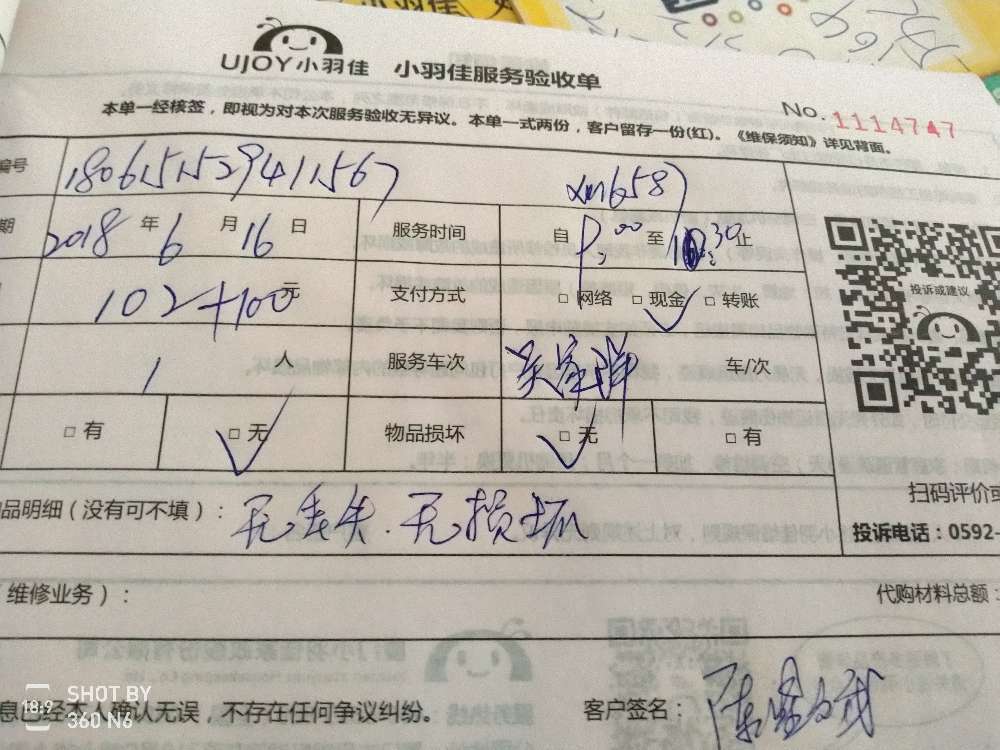 UJOY小羽佳 小羽佳服务验收单
No.1114747
本单一经核签，即视为对本次服务验收无异议。本单一式两份，客户留存一份(红)。《维保须知》详见背面。
编号 1806151529411567 xm6587
期 2018 年 6 月 16 日 服务时间 自 8:00 至 10:30 止
102+100元 支付方式 □网络 □现金 □转账
投诉或建议
1 人 服务车次 车/次
□有 □无 物品损坏 □无 □有
扫码评价或
品明细（没有可不填）： 无丢失.无损坏
投诉电话：0592-
维修业务）： 代购材料总额：
息已经本人确认无误，不存在任何争议纠纷。 客户签名：
SHOT BY
360 N6
18:9